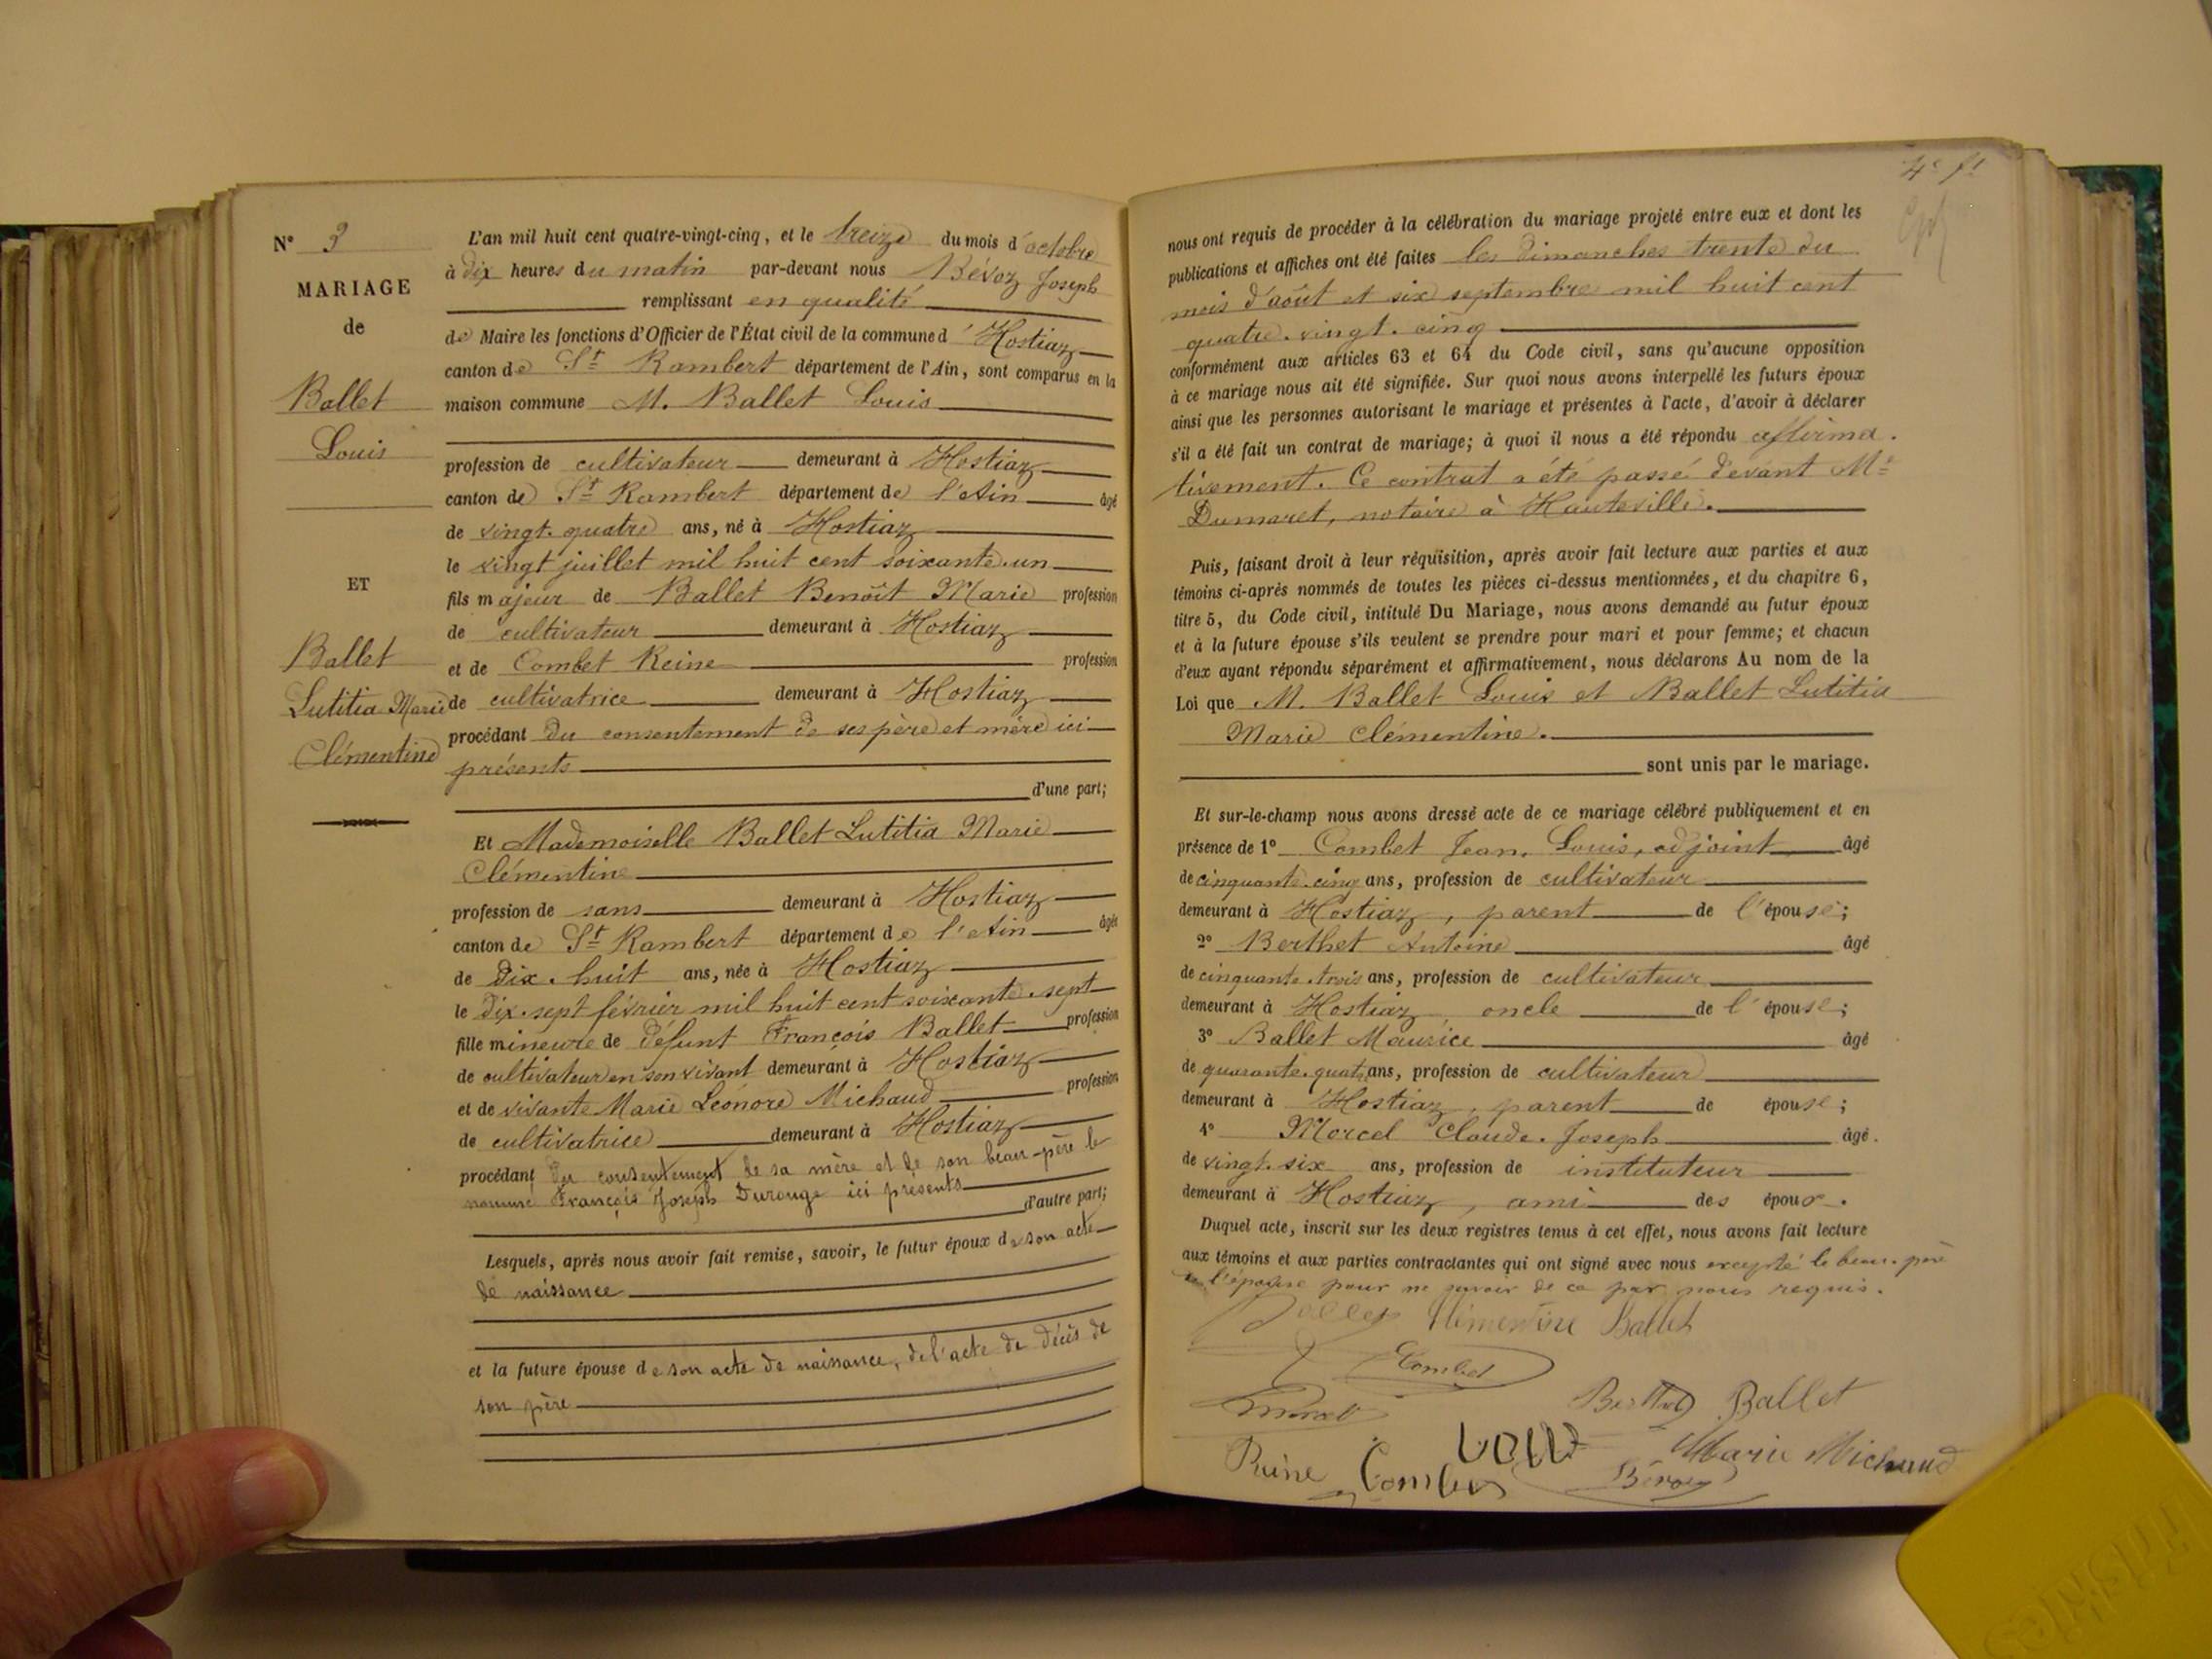 N° 3
MARIAGE
de
Ballet
Louis
ET
Ballet
Lutitia Marie
Clémentine
L'an mil huit cent quatre-vingt-cinq, et le treize du mois d'octobre
à dix heures du matin par-devant nous Bévoz Joseph
remplissant en qualité
de Maire les fonctions d'Officier de l'État civil de la commune d'Hostiaz
canton de St Rambert département de l'Ain, sont comparus en la
maison commune M. Ballet Louis
profession de cultivateur demeurant à Hostiaz
canton de St Rambert département de l'Ain âgé
de vingt-quatre ans, né à Hostiaz
le vingt juillet mil huit cent soixante-un
fils majeur de Ballet Benoît Marie profession
de cultivateur demeurant à Hostiaz
et de Combet Reine profession
de cultivatrice demeurant à Hostiaz
procédant du consentement de ses père et mère ici
présents
d'une part;
Et Mademoiselle Ballet Lutitia Marie
Clémentine
profession de sans demeurant à Hostiaz
canton de St Rambert département de l'Ain âgée
de dix-huit ans, née à Hostiaz
le dix-sept février mil huit cent soixante-sept
fille mineure de défunt François Ballet profession
de cultivateur en son vivant demeurant à Hostiaz
et de vivante Marie Léonore Michaud profession
de cultivatrice demeurant à Hostiaz
procédant du consentement de sa mère et de son beau-père le
nommé François Joseph Durouge ici présents
d'autre part;
Lesquels, après nous avoir fait remise, savoir, le futur époux de son acte
de naissance
et la future épouse de son acte de naissance, de l'acte de décès de
son père
4e ft
nous ont requis de procéder à la célébration du mariage projeté entre eux et dont les
publications et affiches ont été faites les dimanches trente du
mois d'août et six septembre mil huit cent
quatre-vingt-cinq
conformément aux articles 63 et 64 du Code civil, sans qu'aucune opposition
à ce mariage nous ait été signifiée. Sur quoi nous avons interpellé les futurs époux
ainsi que les personnes autorisant le mariage et présentes à l'acte, d'avoir à déclarer
s'il a été fait un contrat de mariage; à quoi il nous a été répondu affirma-
tivement. Ce contrat a été passé devant Me
Dumaret, notaire à Hauteville.
Puis, faisant droit à leur réquisition, après avoir fait lecture aux parties et aux
témoins ci-après nommés de toutes les pièces ci-dessus mentionnées, et du chapitre 6,
titre 5, du Code civil, intitulé Du Mariage, nous avons demandé au futur époux
et à la future épouse s'ils veulent se prendre pour mari et pour femme; et chacun
d'eux ayant répondu séparément et affirmativement, nous déclarons Au nom de la
Loi que M. Ballet Louis et Ballet Lutitia
Marie Clémentine.
sont unis par le mariage.
Et sur-le-champ nous avons dressé acte de ce mariage célébré publiquement et en
présence de 1° Combet Jean-Louis, adjoint âgé
de cinquante-cinq ans, profession de cultivateur
demeurant à Hostiaz, parent de l'épouse;
2° Berthet Antoine âgé
de cinquante-trois ans, profession de cultivateur
demeurant à Hostiaz, oncle de l'épouse;
3° Ballet Maurice âgé
de quarante-quatre ans, profession de cultivateur
demeurant à Hostiaz, parent de épouse;
4° Morcel Claude-Joseph âgé.
de vingt-six ans, profession de instituteur
demeurant à Hostiaz, ami des époux.
Duquel acte, inscrit sur les deux registres tenus à cet effet, nous avons fait lecture
aux témoins et aux parties contractantes qui ont signé avec nous excepté le beau-père
de l'épouse pour ne savoir de ce par nous requis.
Ballet Clémentine Ballet
Combet
Morcel Berthet Ballet
Reine Combet Marie Michaud
Bévoz